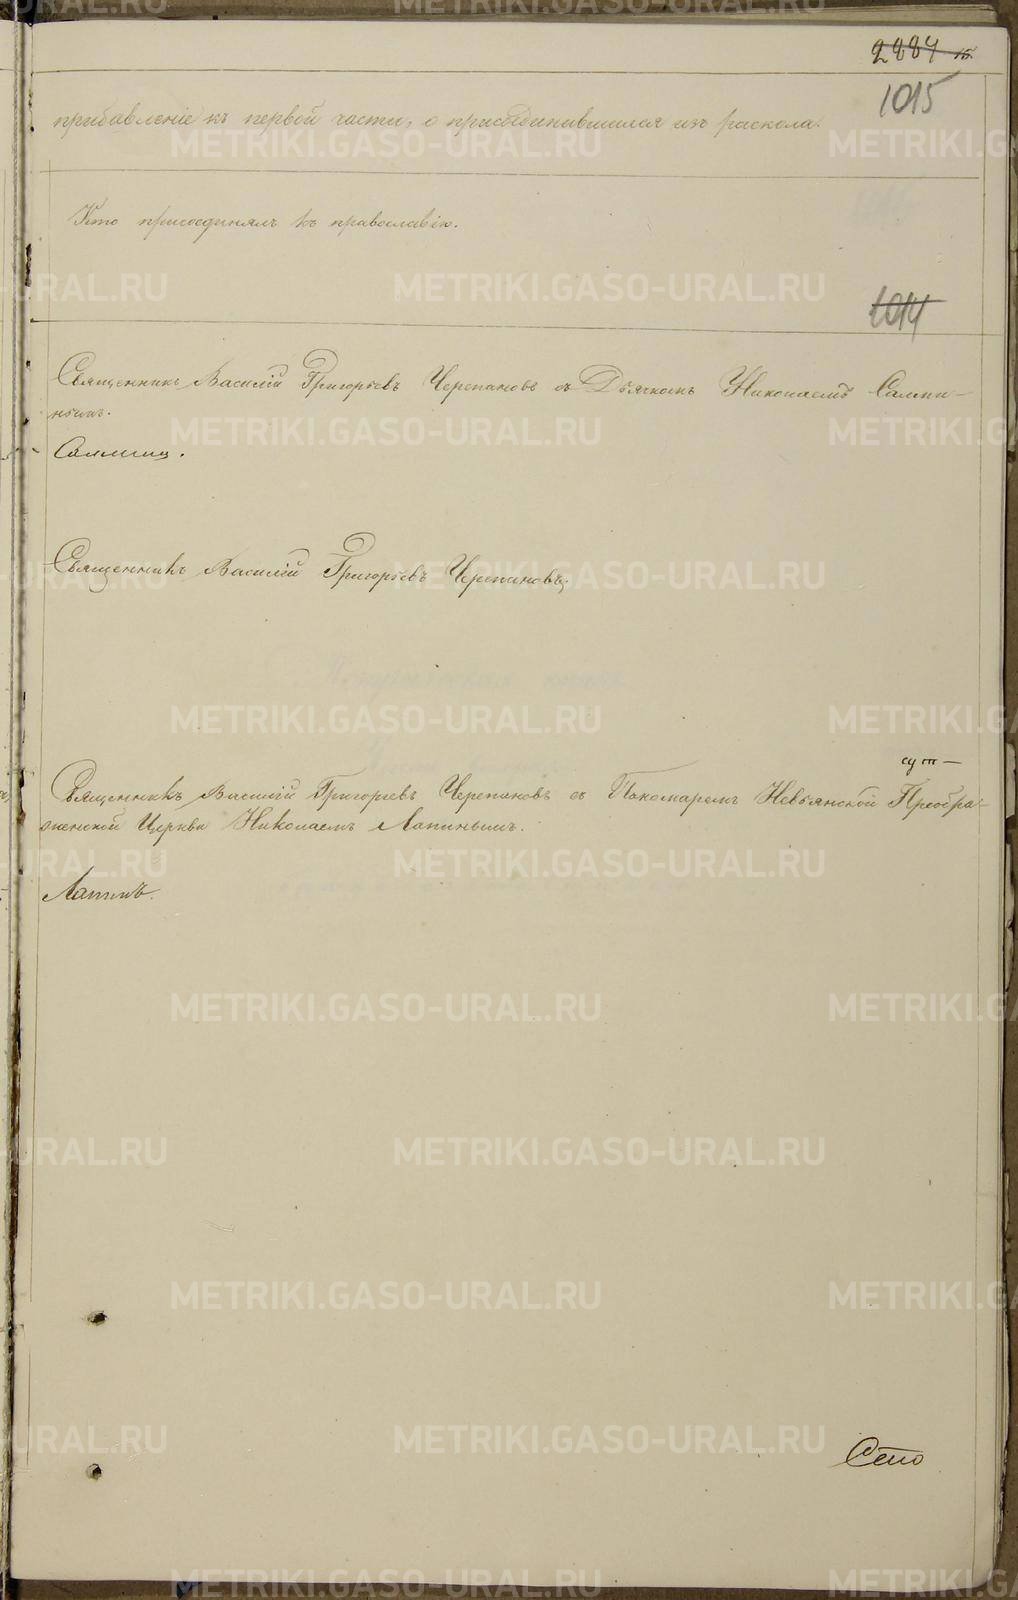 2884 15.
1015
прибавленіе къ первой части, о присоединившихся изъ раскола.
Кто присоединялъ къ православію.
1014
Священникъ Василій Григорьевъ Черепановъ съ Дьячкомъ Николаемъ
Священникъ Василій Григорьевъ Черепановъ.
Священникъ Василій Григорьевъ Черепановъ съ Пономаремъ Невьянской Преобра-
женской Церкви Николаемъ Лапинымъ.
Лапинъ.
METRIKI.GASO-URAL.RU